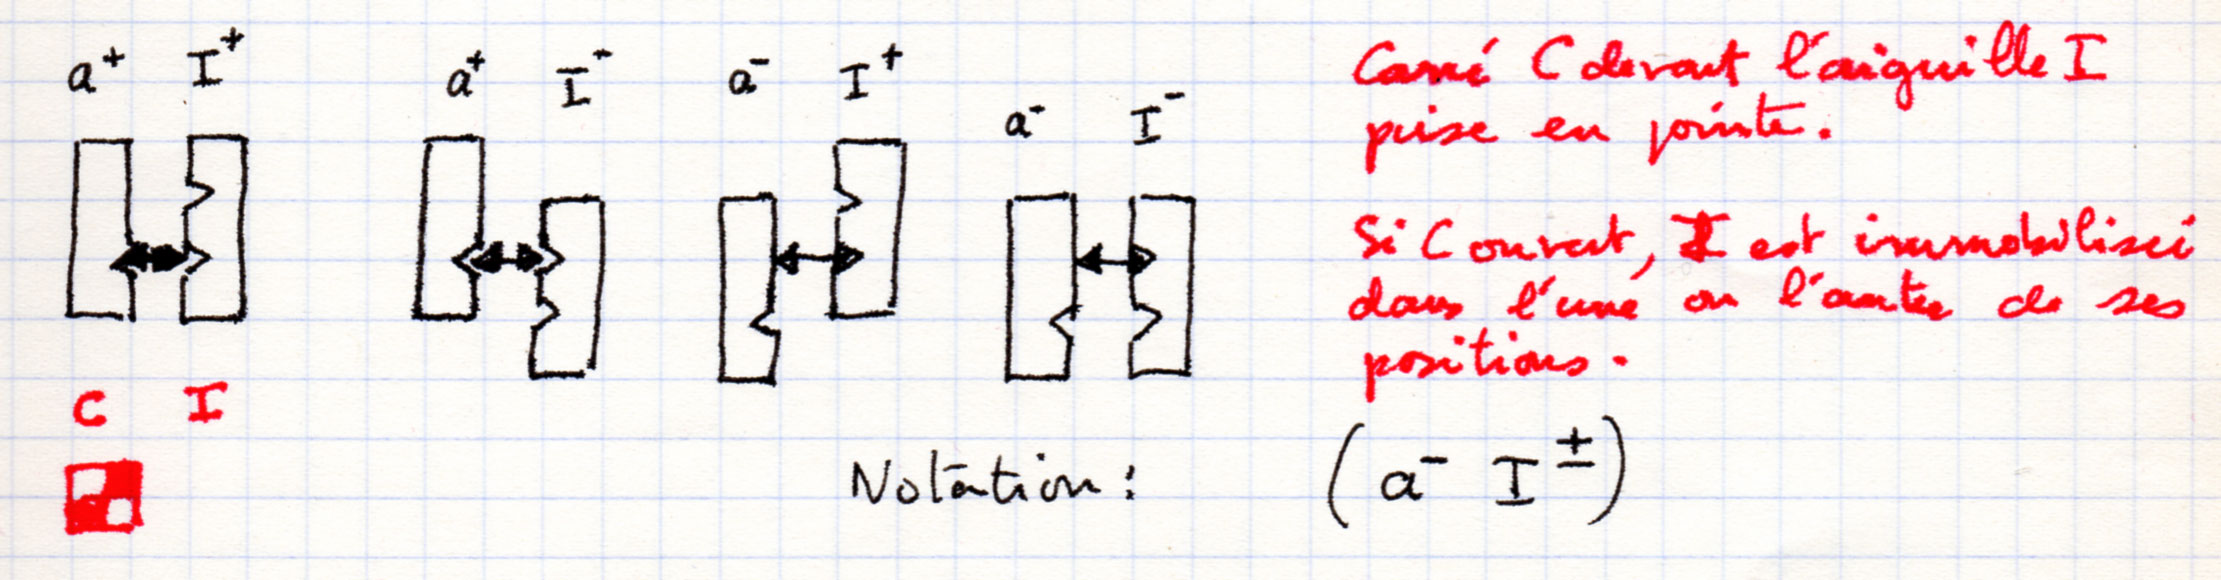 a⁺ I⁺
a⁺ I⁻
a⁻ I⁺
a⁻ I⁻
C I
Carré C devant l'aiguille I
prise en pointe.
Si C ouvert, I est immobilisé
dans l'une ou l'autre de ses
positions.
Notation : (a⁻ I±)